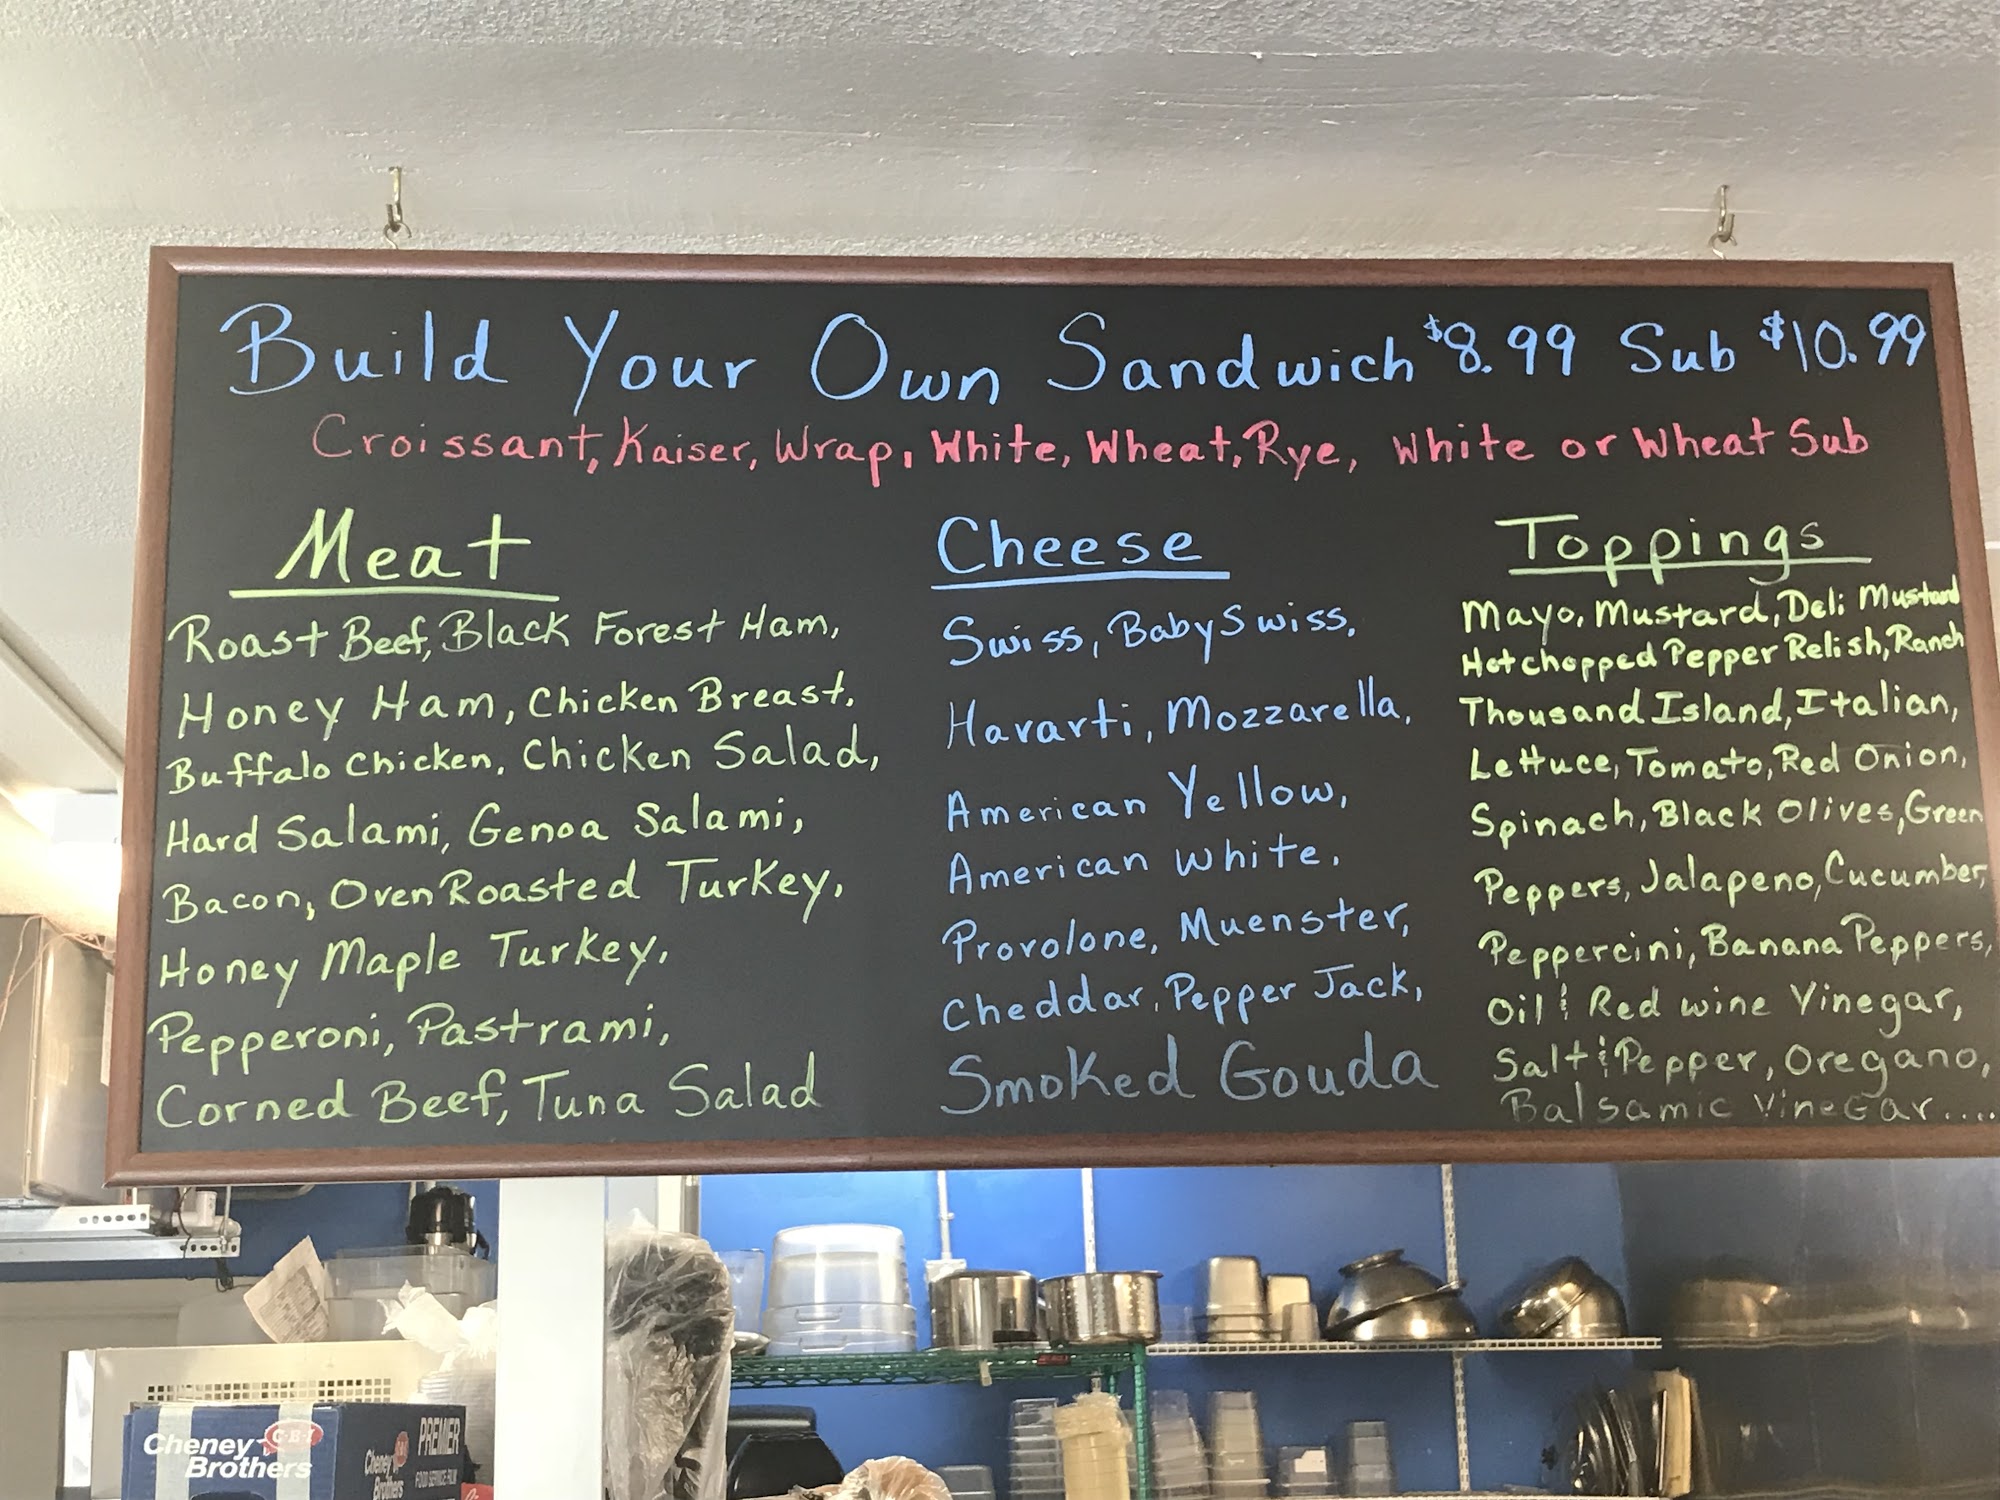 Build Your Own Sandwich $8.99 Sub $10.99
Croissant, Kaiser, Wrap, White, Wheat, Rye, White or Wheat Sub
Meat
Roast Beef, Black Forest Ham,
Honey Ham, Chicken Breast,
Buffalo Chicken, Chicken Salad,
Hard Salami, Genoa Salami,
Bacon, Oven Roasted Turkey,
Honey Maple Turkey,
Pepperoni, Pastrami,
Corned Beef, Tuna Salad
Cheese
Swiss, Baby Swiss,
Havarti, Mozzarella,
American Yellow,
American White,
Provolone, Muenster,
Cheddar, Pepper Jack,
Smoked Gouda
Toppings
Mayo, Mustard, Deli Mustard
Hot chopped Pepper Relish, Ranch
Thousand Island, Italian,
Lettuce, Tomato, Red Onion,
Spinach, Black Olives, Green
Peppers, Jalapeno, Cucumber,
Peppercini, Banana Peppers,
Oil & Red wine Vinegar,
Salt & Pepper, Oregano,
Balsamic Vinegar....
Cheney
Brothers
C-B-I
Cheney
Brothers
PREMIER
FOOD SERVICE FILM